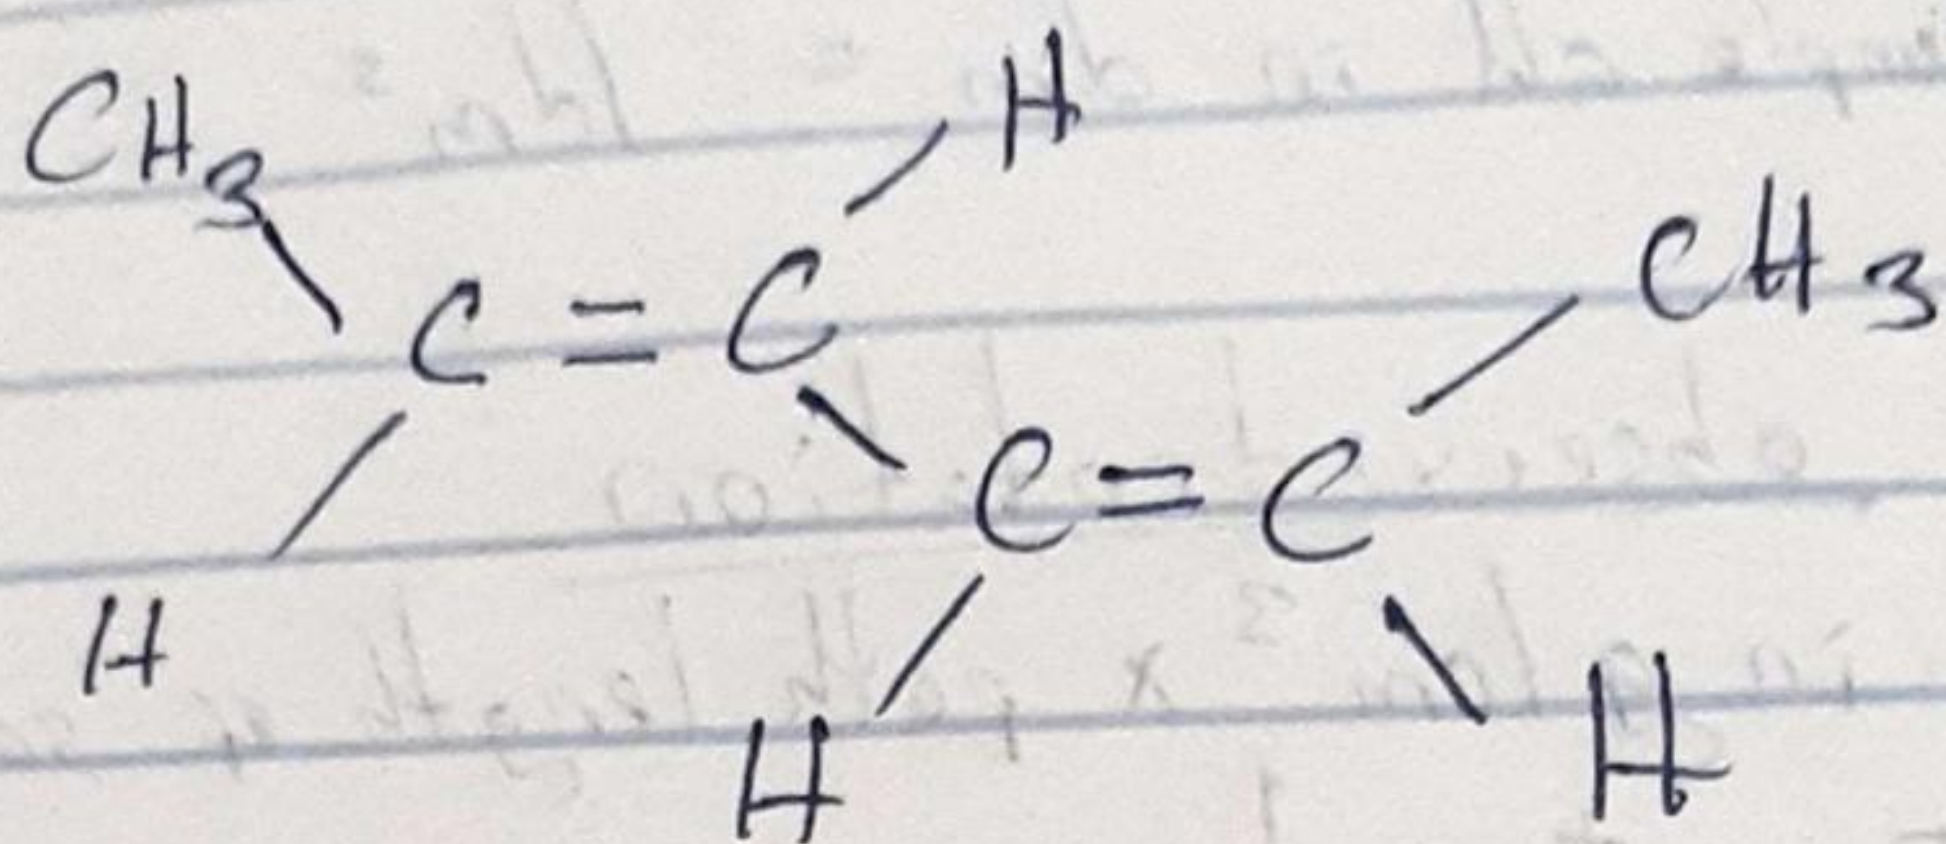 H
CH3
CH3
C = C
C = C
H
H
H